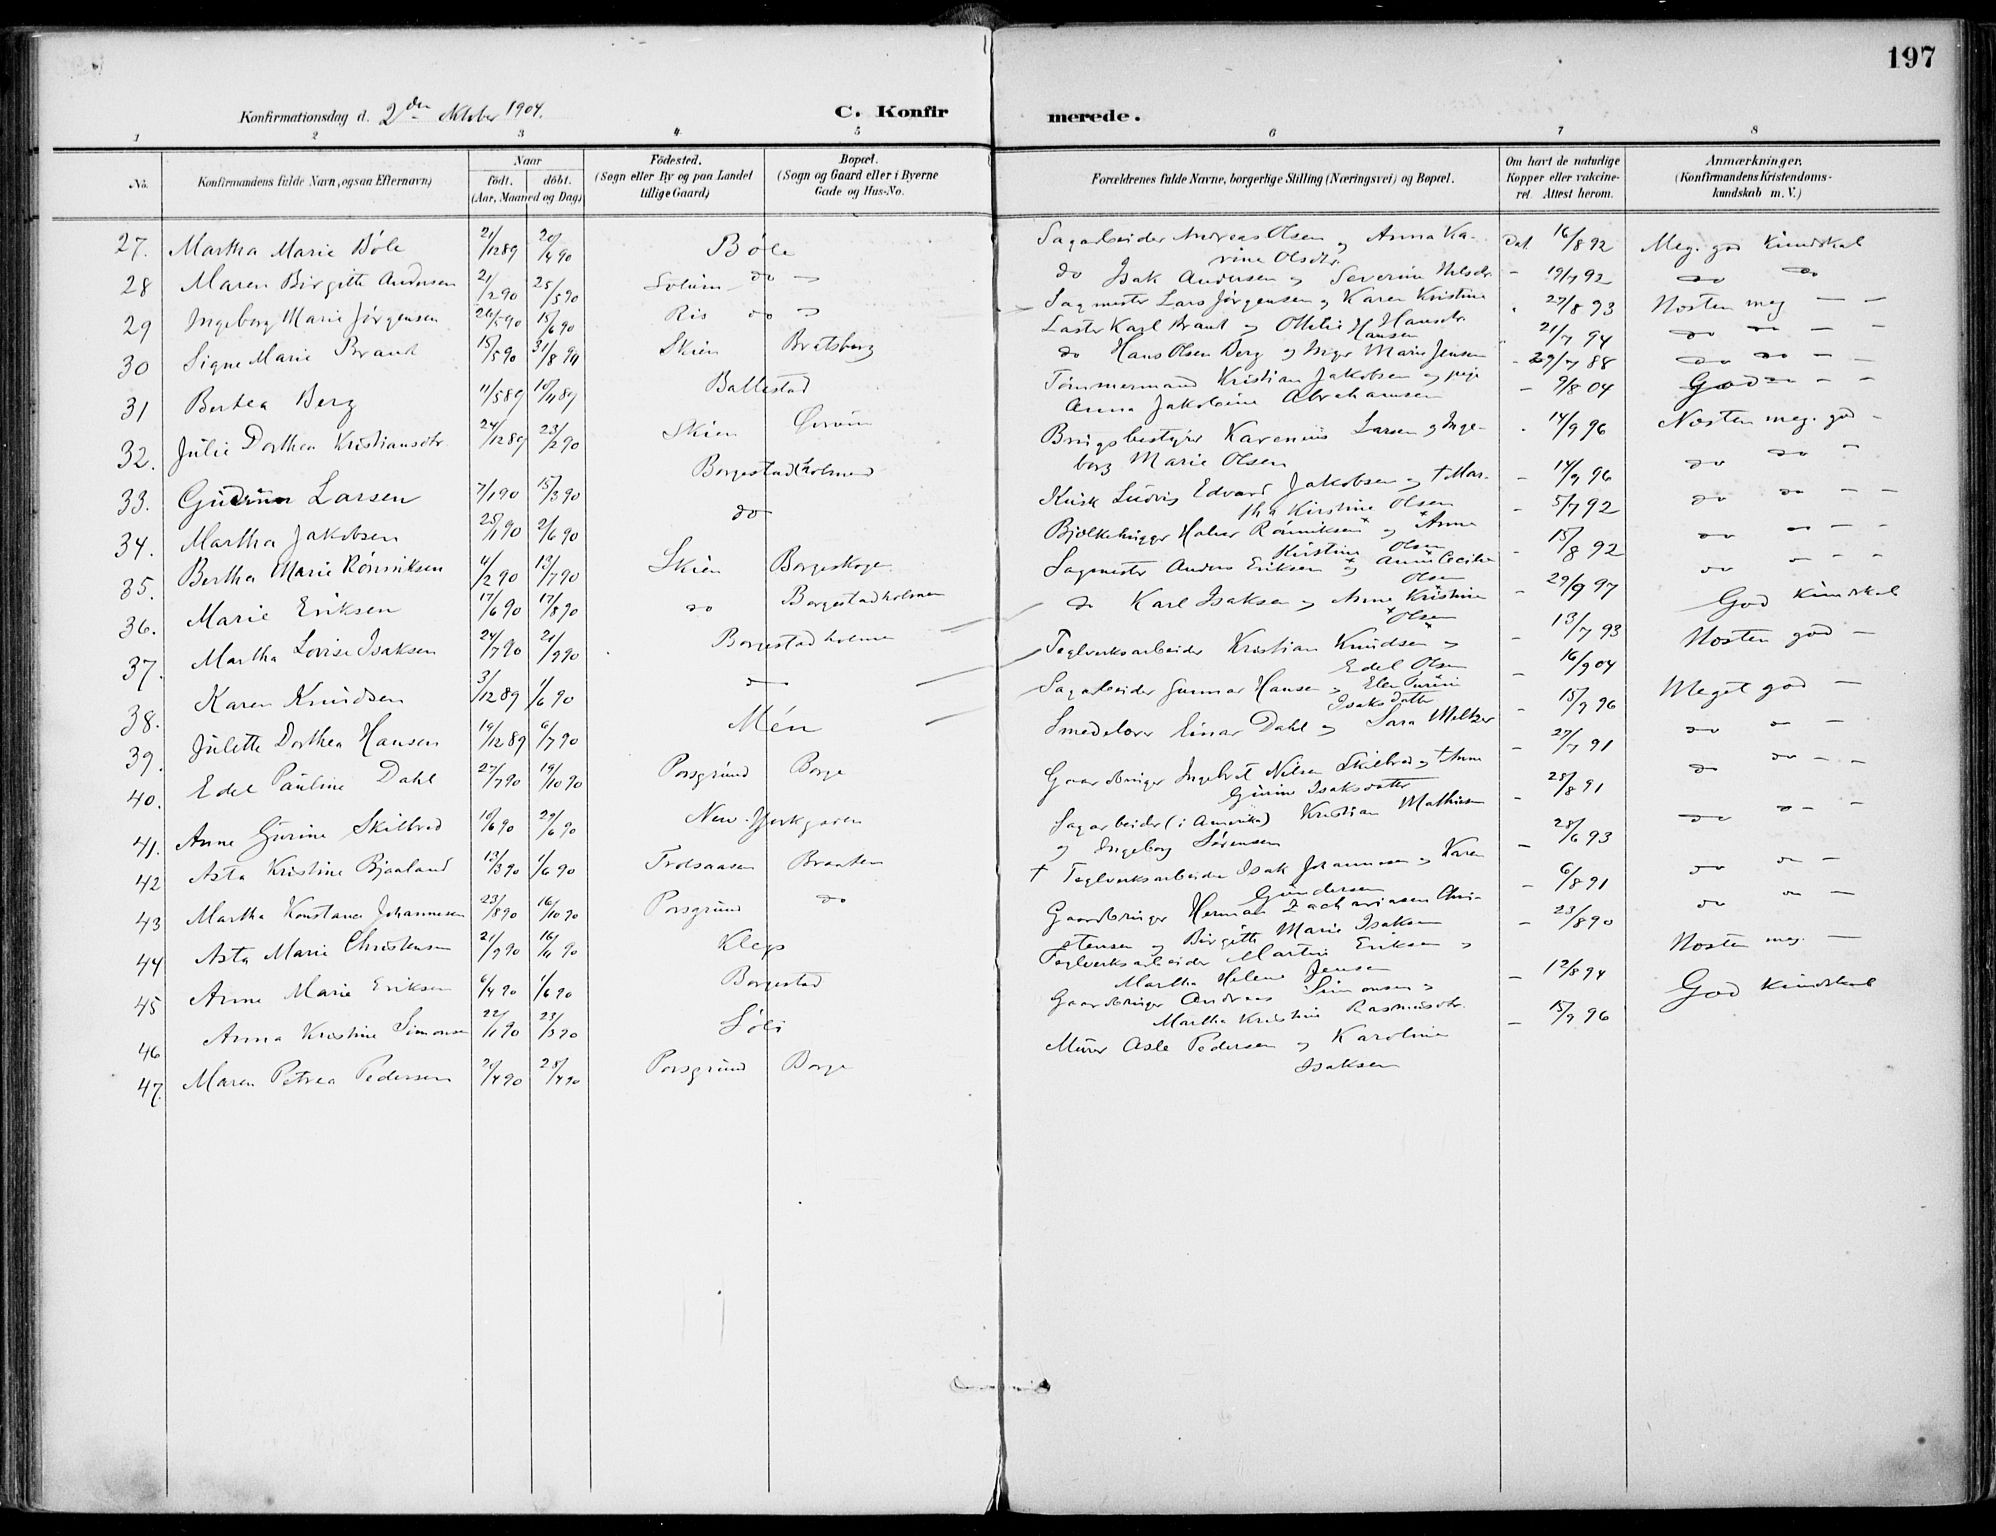 197
Konfirmationsdag d. 2den Oktober 1904.
C. Konfirmerede.
1 2 3 4 5 6 7 8
No. Konfirmandens fulde Navn, ogsaa Efternavn) Naar födt. döbt. (Aar, Maaned og Dag) Födested. (Sogn eller By og paa Landet tillige Gaard) Bopæl. (Sogn og Gaard eller i Byerne Gade og Hus-No. Forældrenes fulde Navne, borgerlige Stilling (Næringsvei) og Bopæl. Om havt de naturlige Kopper eller vakcineret. Attest herom. Anmærkninger. (Konfirmandens Kristendomskundskab m. V.)
27. Martha Marie Böle 21/12 89 20/4 90 Böle Sagarbeider Andreas Olsen og Anna Karine Olsdtr. Dat. 16/8 92 Meg. god Kundskab
28 Maren Birgitte Andersen 21/2 90 25/5 90 Solum do Isak Andersen og Severine Nilsdr. - 19/7 92 do do
29 Ingeborg Marie Jörgensen 26/5 90 15/6 90 Ris do Sagmester Lars Jörgensen og Karen Kristine Hansen 27/8 93 Nesten meg - -
30 Signe Marie Brant 15/5 90 31/8 90 Skien Bratsberg Laster Karl Brant og Ottilie Hansdtr. 21/7 94 do do - -
31 Berthea Berg 11/5 89 10/11 89 Ballestad do Hans Olsen Berg og Inger Marie Jensen - 29/7 88 do do - -
32. Julie Dorthea Kristiansdtr. 24/12 89 23/2 90 Skien Örum Tömmermand Kristian Jakobsen og pige Anna Jakobine Abrahamsen - 9/8 04 God - -
33. Gudrun Larsen 7/1 90 15/3 90 Borgestad(holmen) Brugsbestyrer Karenius Larsen og Ingeborg Marie Olsen 14/9 96 Nesten meg. god -
34. Martha Jakobsen 25/1 90 2/6 90 do Kusk Ludvig Edvard Jakobsen og † Martha Kirstine Olsen - 14/9 96 do do -
35. Bertha Marie Rönniksen 11/2 90 13/7 90 Skien Borgeskoge Bjelkehugger Halvor Rönniksen og Anne Kirstine Olsen - 5/7 92 do do - -
36. Marie Eriksen 17/6 90 17/8 90 do Borgestadholmen Sagmester Anders Eriksen og Anne Cecilie Olsen - 15/8 92 do - - -
37. Martha Lovise Isaksen 24/7 90 21/9 90 Borgestadholmen do Karl Isaksen og Anne Kristine Olsen - 29/9 97 do - - -
38. Karen Knudsen 3/12 89 1/6 90 do Teglverksarbeider Kristian Knudsen og Edel Olsen - 13/7 93 God Kundskab
39. Julette Dorthea Hansen 14/12 89 6/7 90 Mén Sagarbeider Gunnar Hansen og Elen Gurine Isaksdatter - 16/9 04 Nesten god -
40. Edel Pauline Dahl 27/7 90 19/10 90 Porsgrund Borge Smedelærer Einar Dahl og Sara Meltzer - 15/9 96 Meget god -
41. Anne Gurine Skilbred 10/6 90 29/6 90 New-Yorkgaden Gaardbruger Ingebret Nilsen Skilbred og † Anne Gurine Isaksdatter - 27/7 91 do do -
42 Asta Kristine Bjaaland 13/3 90 1/6 90 Trolsaasen Braaten Sagarbeider (i Amerika) Kristian Mathisen og Ingeborg Sörensen - 25/8 91 do do - -
43 Martha Konstance Johannesen 23/8 90 16/10 90 Porsgrund do † Teglverksarbeider Isak Johannesen og Karen Gundersen - 28/6 93 do do -
44 Asta Marie Christensen 21/9 90 16/11 90 Kleps Gaardbruger Herman Zachariasen Christensen og Birgitte Marie Isaksen - 6/8 91 do do -
45 Anne Marie Eriksen 6/4 90 1/6 90 Borgestad Teglverksarbeider Martin Eriksen og Martha Helene Jensen - 23/8 90 do do -
46 Anna Kristine Simonsen 22/1 90 23/3 90 Söli Gaardbruger Andreas Simonsen og Martha Kristine Rasmusdtr. - 12/8 94 Nesten meg. -
47. Maren Petrea Pedersen 2/4 90 28/4 90 Porsgrund Borge Murer Asle Pedersen og Karoline Isaksen - 15/9 96 God Kundskab